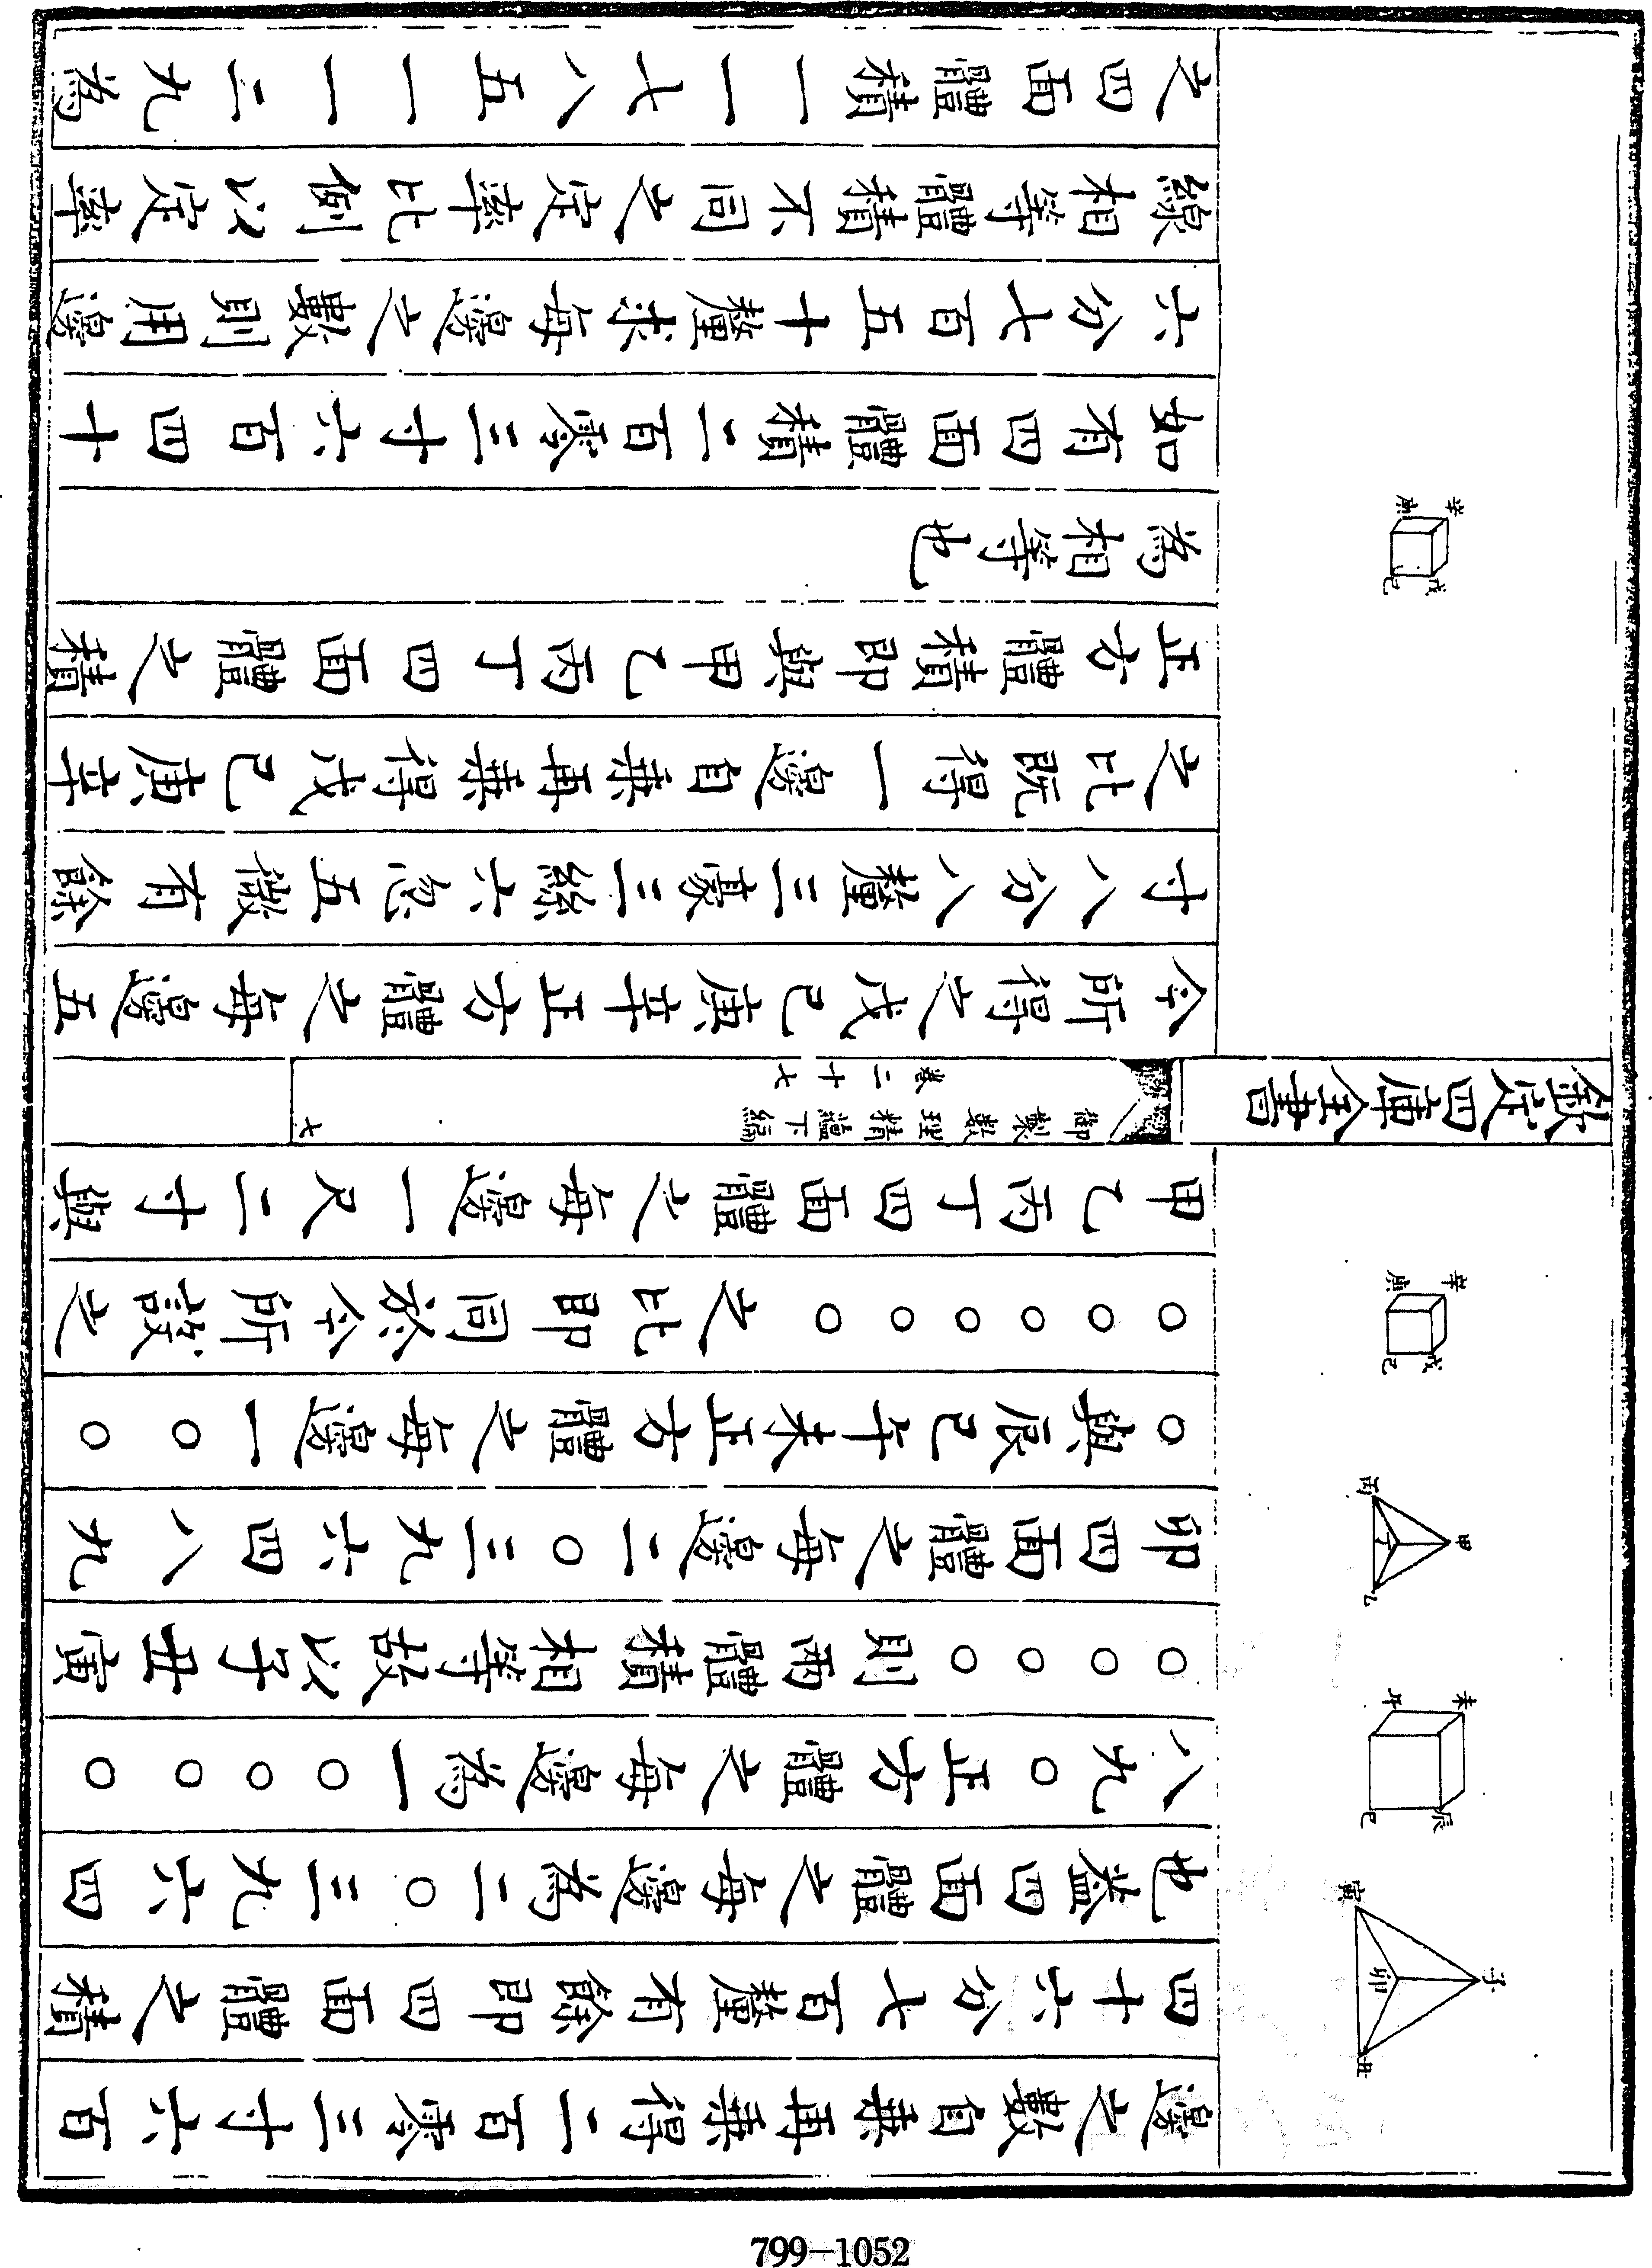 邊之數自乗再乗得二百零三寸六百
四十六分七百釐有餘即四面體之積
也葢四面體之每邊為二〇三九六四
八九〇正方體之每邊為一〇〇〇〇
〇〇〇〇則兩體積相等故以子丑寅
卯四面體之每邊二〇三九六四八九
〇與辰巳午未正方體之每邊一〇〇
〇〇〇〇〇〇之比即同於今所設之
甲乙丙丁四面體之每邊一尺二寸與
子
寅
卯
丑
未
午
辰
巳
甲
丙
丁
乙
辛
庚
戊
己
欽定四庫全書
御製數理精藴下編
卷二十七
七
今所得之戊己庚辛正方體之每邊五
寸八分八釐三豪三絲六忽五微有餘
之比既得一邊自乗再乗得戊己庚辛
正方體積即與甲乙丙丁四面體之積
為相等也
如有四面體積二百零三寸六百四十
六分七百五十釐求每邊之數則用邊
線相等體積不同之定率比例以定率
之四面體積一一七八五一一二九為
辛
庚
戊
己
799-1052